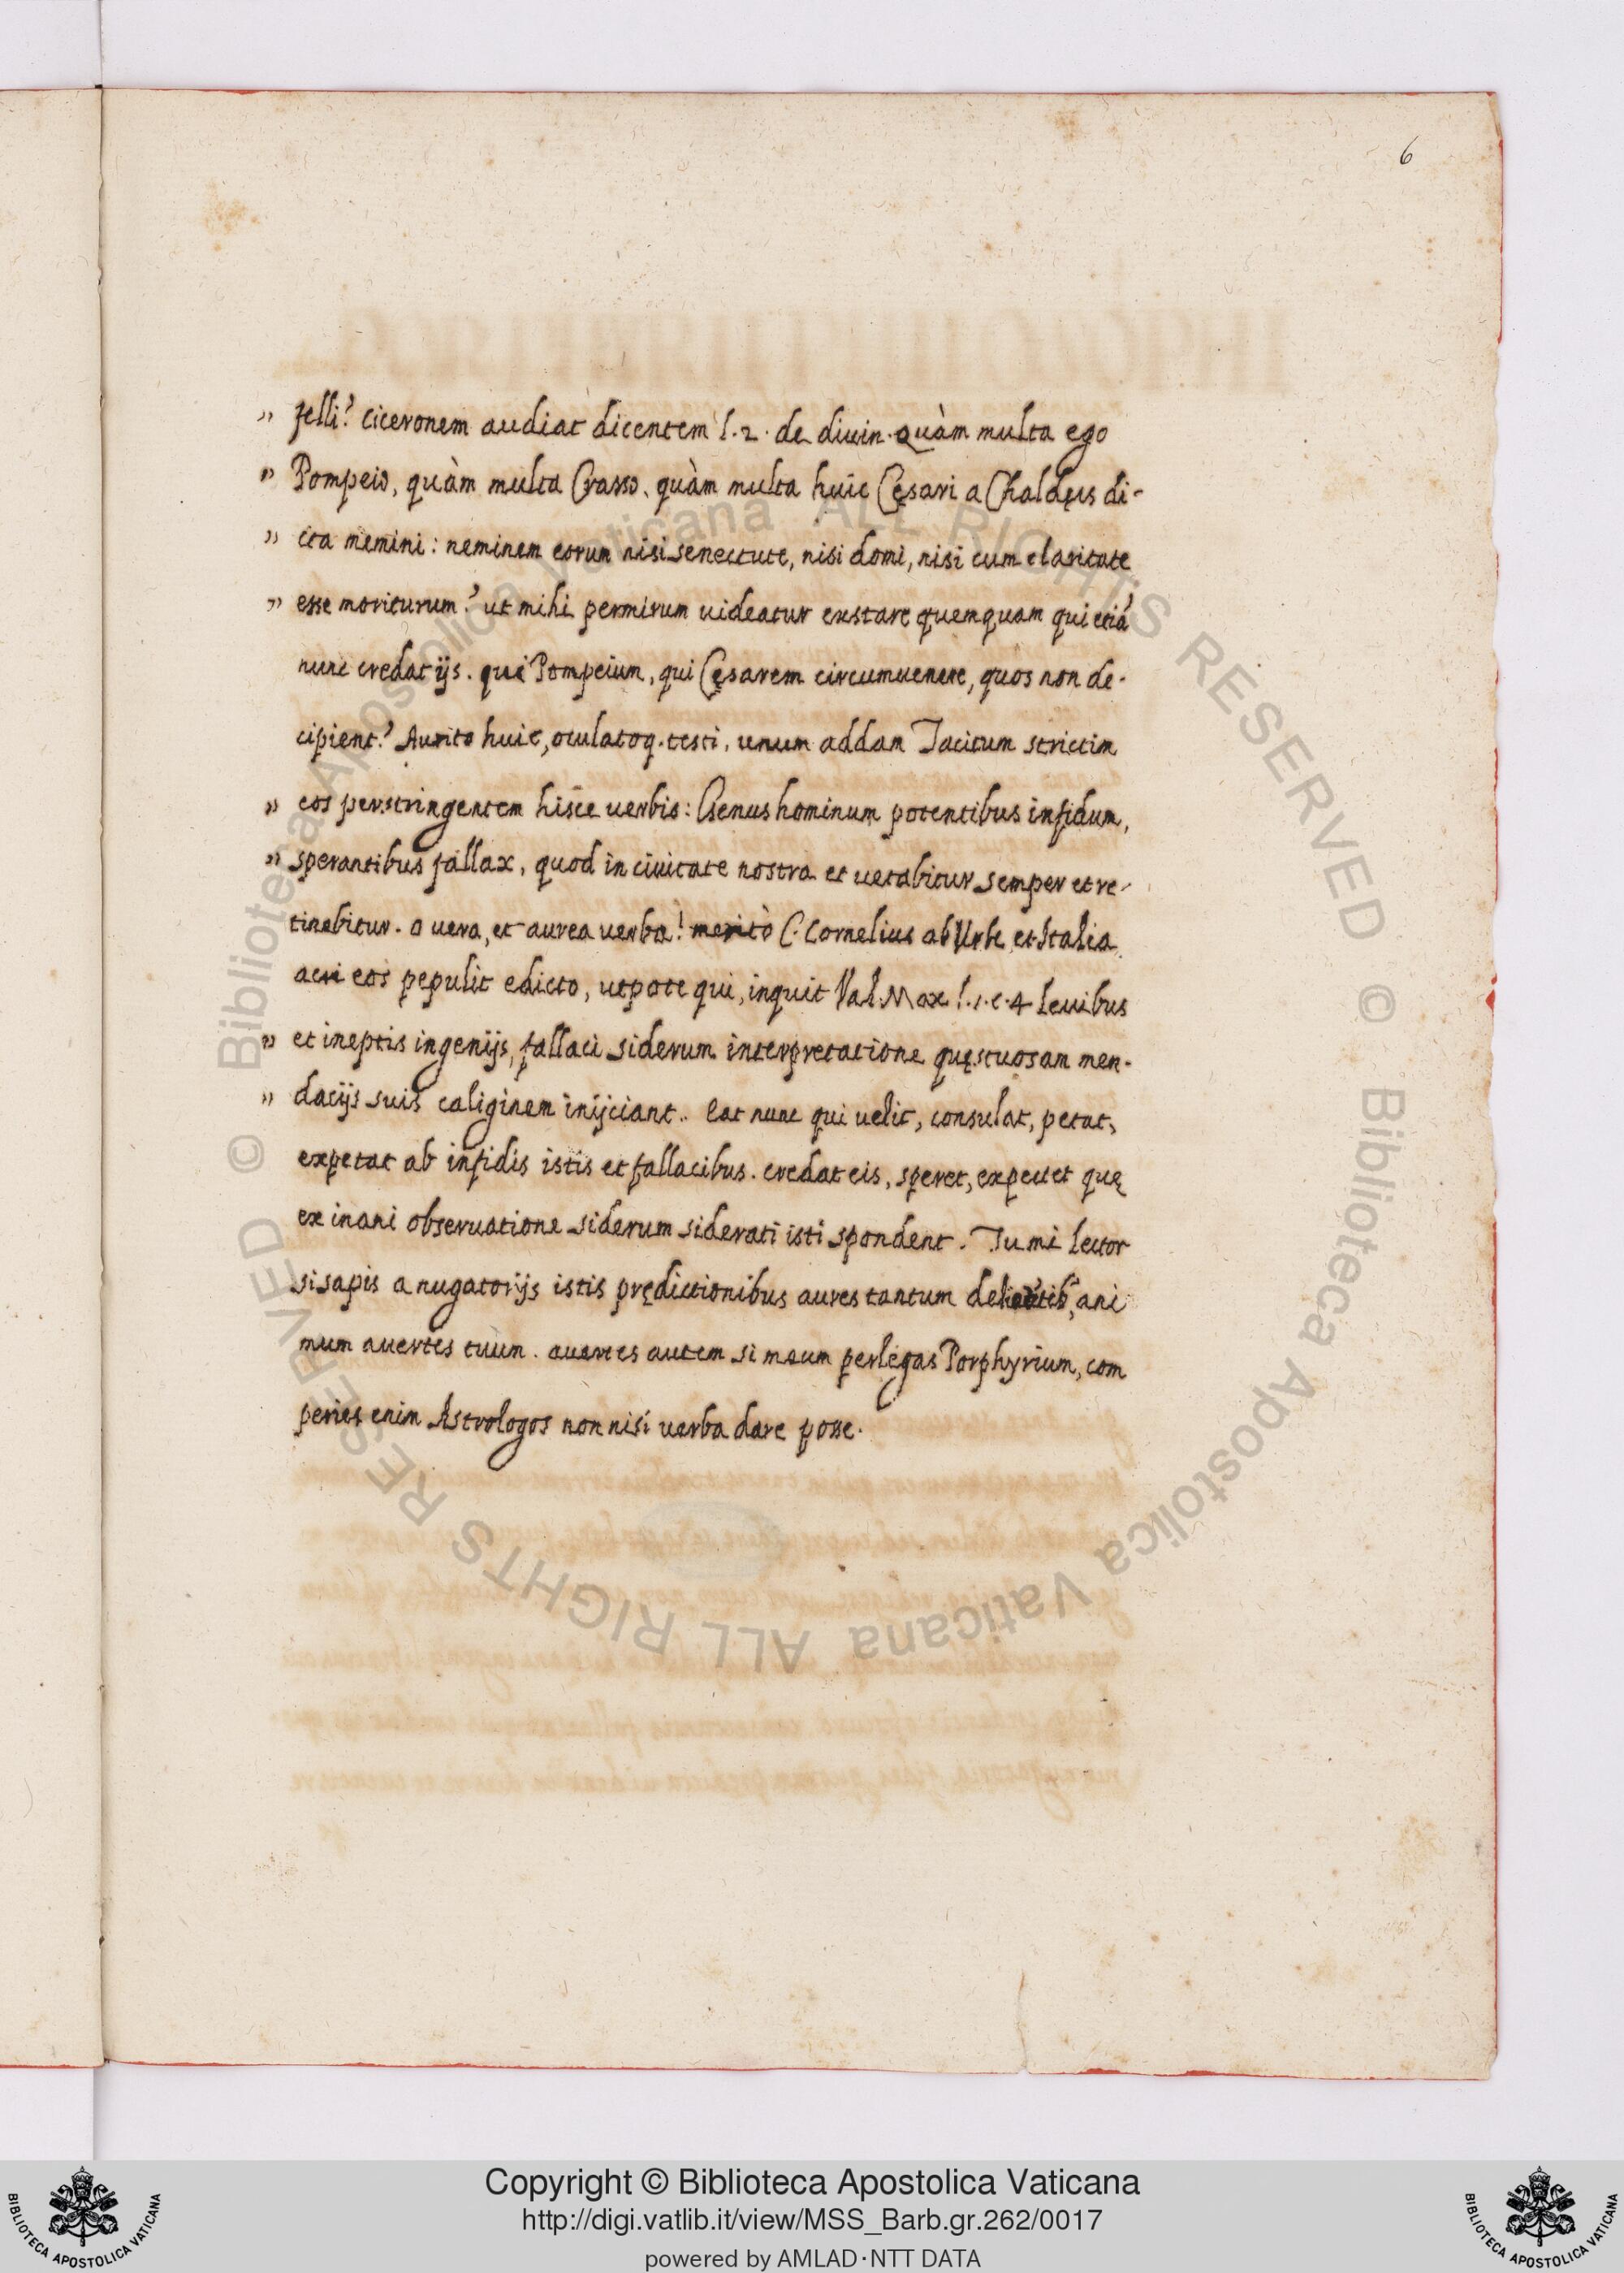 6
” felli? Ciceronem audiat dicentem l. 2. de diuin. Quàm multa ego
” Pompeio, quàm multa Crasso, quàm multa huic Cęsari a Chaldęis di-
” cta memini: neminem eorum nisi senectute, nisi domi, nisi cum claritate
” esse moriturum? ut mihi permirum uideatur exstare quemquam qui etiã
nunc credat ijs. qui Pompeium, qui Cęsarem circumuenere, quos non de-
cipient? Aurito huic, oculatoq. testi, unum addam Tacitum strictim
” eos perstringentem hisce uerbis: Genus hominum potentibus infidum,
” sperantibus fallax, quod in ciuitate nostra et uetabitur semper et re-
tinebitur. o uera, et aurea uerba! meritò C. Cornelius ab Urbe, et Italia
acri eos pepulit edicto, utpote qui, inquit Val. Max l. 1. c. 4 leuibus
” et ineptis ingenijs, fallaci siderum interpretatione quęstuosam men-
” dacijs suis caliginem inijciant. Eat nunc qui uelit, consulat, petat,
expetat ab infidis istis et fallacibus. credat eis, speret, expectet quę
ex inani obseruatione siderum siderati isti spondent. Tu mi lector
si sapis a nugatorijs istis prędictionibus aures tantum ani
mum auertes tuum. auertes autem si meum perlegas Porphyrium, com
peries enim Astrologos non nisi uerba dare posse.
© Biblioteca Apostolica Vaticana ALL RIGHTS RESERVED
© Biblioteca Apostolica Vaticana ALL RIGHTS RESERVED
BIBLIOTECA APOSTOLICA VATICANA
Copyright © Biblioteca Apostolica Vaticana
http://digi.vatlib.it/view/MSS_Barb.gr.262/0017
powered by AMLAD·NTT DATA
BIBLIOTECA APOSTOLICA VATICANA